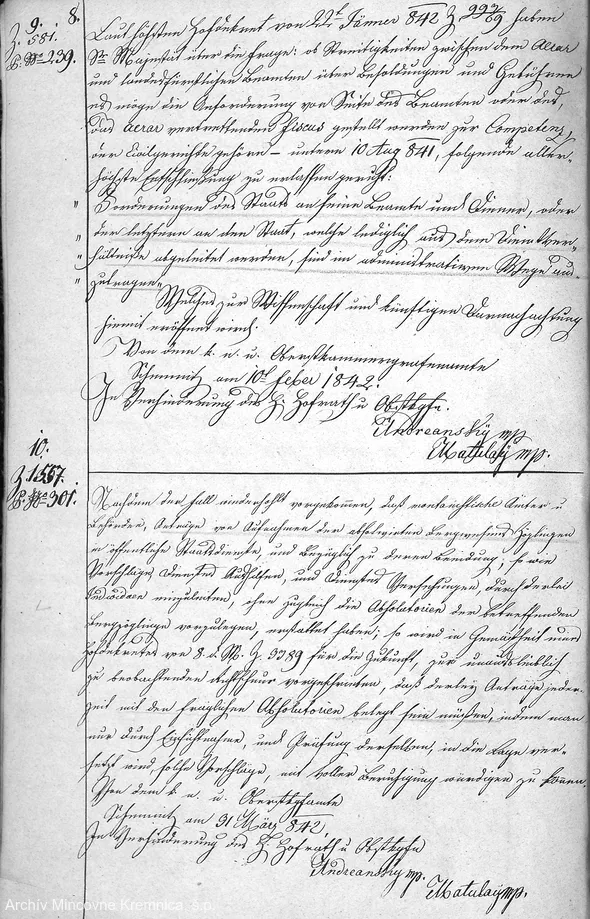 8.
9.
Z. 581.
B: No 239.
Laut höchsten Hofdekret von 22t Jänner 842 Z haben
Se Majestät über die Frage: ob Streitigkeiten zwischen dem Aerar
und landesfürstlichen Beamten über Besoldungen und Gebühren
es möge die Anforderung von Seite des Beamten oder des,
das Aerar vertrettenden Fiscus gestellt werden zur Competenz
der Civilgerichte gehöre – unterm 10 Aug 841, folgende aller-
höchste Entschließung zu erlassen geruht:
„ Forderungen des Staats an seine Beamte und Diener, oder
„ der letztern an den Staat, welche lediglich aus dem Dienstver-
„ hältniße abgeleitet werden, sind im administrativen Wege aus-
„ zutragen„
Welches zur Wissenschaft und künftigen Darnachachtung
hiemit eröffnet wird.
Von dem k. n. u. Oberstkammergrafenamte
Schemnitz am 10t feber 1842.
In Verhinderung des H: Hofrath u Obstkgfn.
Andreansky mp
Mattulay mp.
10.
Z 1567.
B: No 301.
Nachdem der Fall wiederhohlt vorgekommen, daß montanistische Ämter u
Behörden, Anträge von Aufnahmen der absolvirten Bergwesens Zöglingen
in öffentliche Staatsdienste, und bezüglich zu deren Beeidung, so wie
Vorschläge, Dienstes Aushilfen, und Dienstes Versehungen, durch derlei
Individuen einzuleiten, ohne zugleich die Absolutorien der betreffenden
Bergzöglinge vorzulegen, erstattet haben; so wird in Gemäßheit
Hofdekretes von 8. d. M. Z 3389 für die Zukunft, zur unausbleiblich
zu beobachtenden Richtschnur vorgeschrieben, daß derley Anträge jeder-
zeit mit den fraglichen Absolutorien belegt sein müßen, indem man
nur durch Einsichtnahme, und Prüfung derselben, in die Lage ver-
setzt wird, solche Vorschläge, mit voller Beruhigung würdigen zu können.
Von dem k n. u. Oberstkgfamte
Schemnitz am 31 März 842.
In Verhinderung des H: Hofrath u Obstkgfn
Andreansky mp.
Matulay mp.
Archív Mincovne Kremnica, š.p.